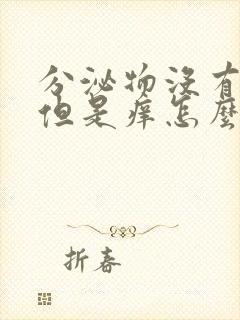 分泌物没有
但是痒怎麽
折春